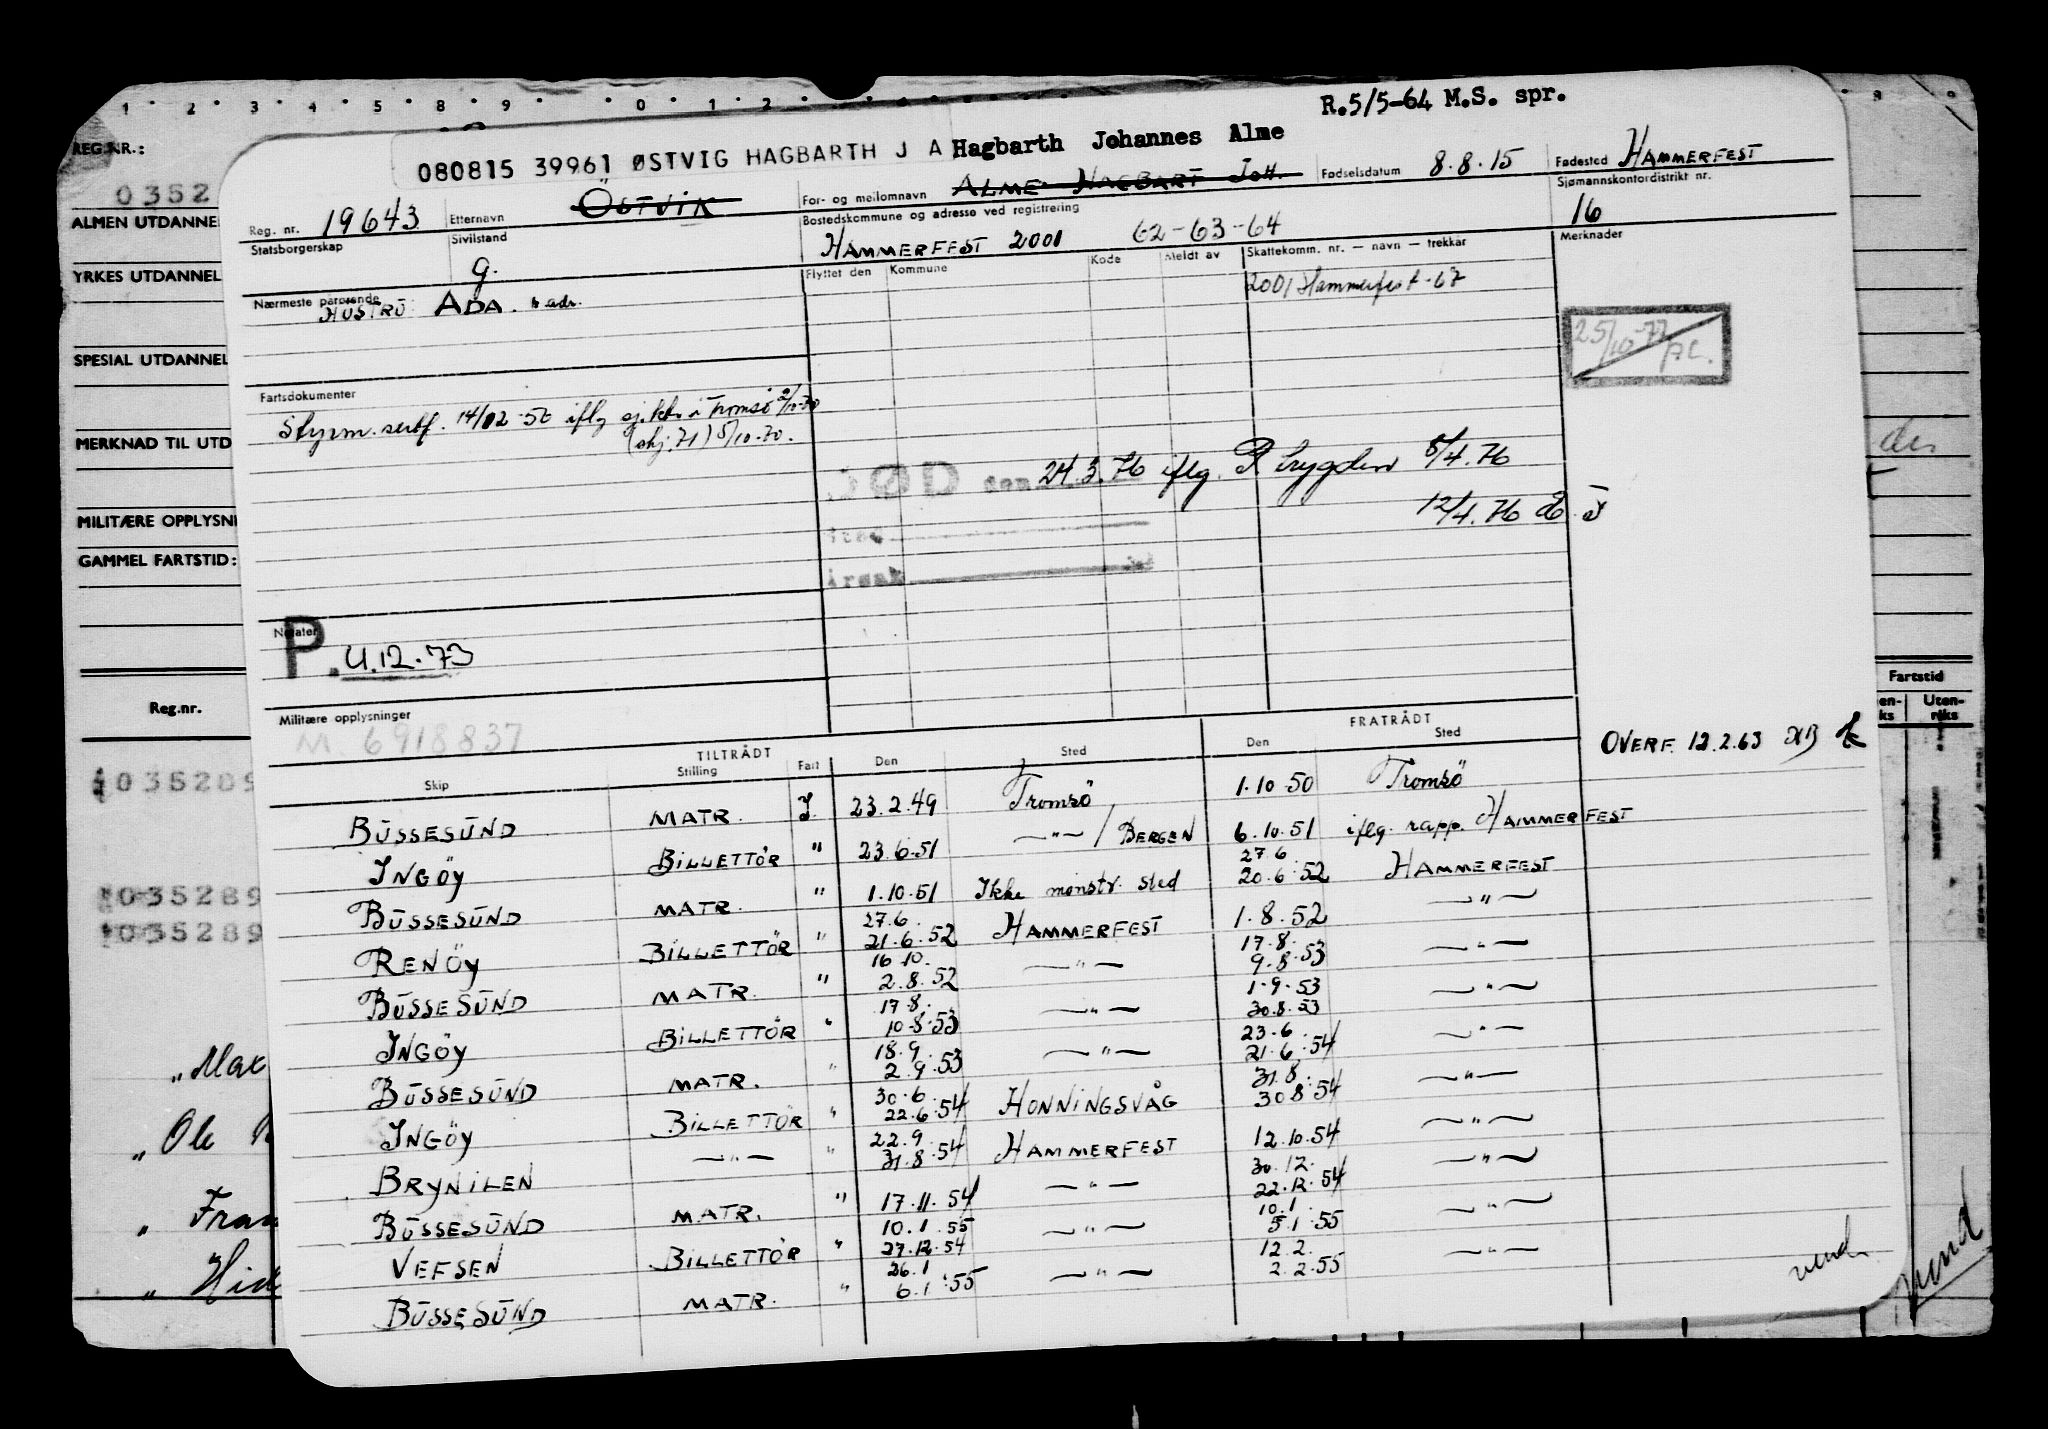 R.5/5-64 M.S. spr.
080815 39961 ØSTVIG HAGBARTH J A Hagbarth Johannes Alme
Reg. nr. 19643 Etternavn ÖSTVIK For- og mellomnavn ALME HAGBART JOH. Fødselsdatum 8.8.15 Fødested HAMMERFEST
Statsborgerskap Sivilstand g. Bostedskommune og adresse ved registrering HAMMERFEST 2001 62-63-64 Sjømannskontordistrikt nr. 16
Nærmeste pårørende HUSTRU: ADA. s. adr.
Flyttet den Kommune Kode Meldt av Skattekomm. nr. — navn — trekkår Merknader
2001 Hammerfest-67
25/10-77 p.c.
Fartsdokumenter
Styrm. sertf. 14/02-50 iflg sj.ktr. i Tromsö 2/10-70
(skj. 71) 5/10-70.
DØD den 24.3.76 iflg. R.trygden 8/4.76
12/4.76
Sted
Årsak
Notater
P. 4.12.73
Militære opplysninger
M. 6918837
OVERF. 12.2.63
TILTRÅDT FRATRÅDT
Skip Stilling Fart Den Sted Den Sted
BUSSESUND MATR. I. 23.2.49 Tromsö 1.10.50 Tromsö
INGÖY BILLETTÖR " 23.6.51 —"— / BERGEN 6.10.51 iflg. rapp. HAMMERFEST
BUSSESUND MATR. " 1.10.51 Ikke mønstr. sted 27.6 20.6.52 HAMMERFEST
RENÖY BILLETTÖR " 27.6. 21.6.52 HAMMERFEST 1.8.52 —"—
BUSSESUND MATR. " 16.10. 2.8.52 —"— 17.8. 9.8.53 —"—
INGÖY BILLETTÖR " 17.8. 10.8.53 —"— 1.9.53 30.8.53 —"—
BUSSESUND MATR. " 18.9. 2.9.53 —"— 23.6. 21.6.54 —"—
INGÖY BILLETTÖR " 30.6. 22.6.54 HONNINGSVÅG 31.8. 30.8.54 —"—
BRYNILEN —"— " 22.9 31.8.54 HAMMERFEST 12.10.54 —"—
BUSSESUND MATR. " 17.11.54 —"— 30.12. 22.12.54 —"—
VEFSEN BILLETTÖR " 10.1.55 27.12.54 —"— 10.1. 5.1.55 —"—
BUSSESUND MATR. " 26.1 6.1.55 —"— 12.2. 2.2.55 —"—
vend
vend
REG.NR.:
0352
ALMEN UTDANNEL
YRKES UTDANNEL
SPESIAL UTDANNEL
MERKNAD TIL UTD
MILITÆRE OPPLYSNI
GAMMEL FARTSTID:
Reg.nr.
Fartstid
Uten-
riks
035289
035289
035289
"Max
"Ole
" Fran